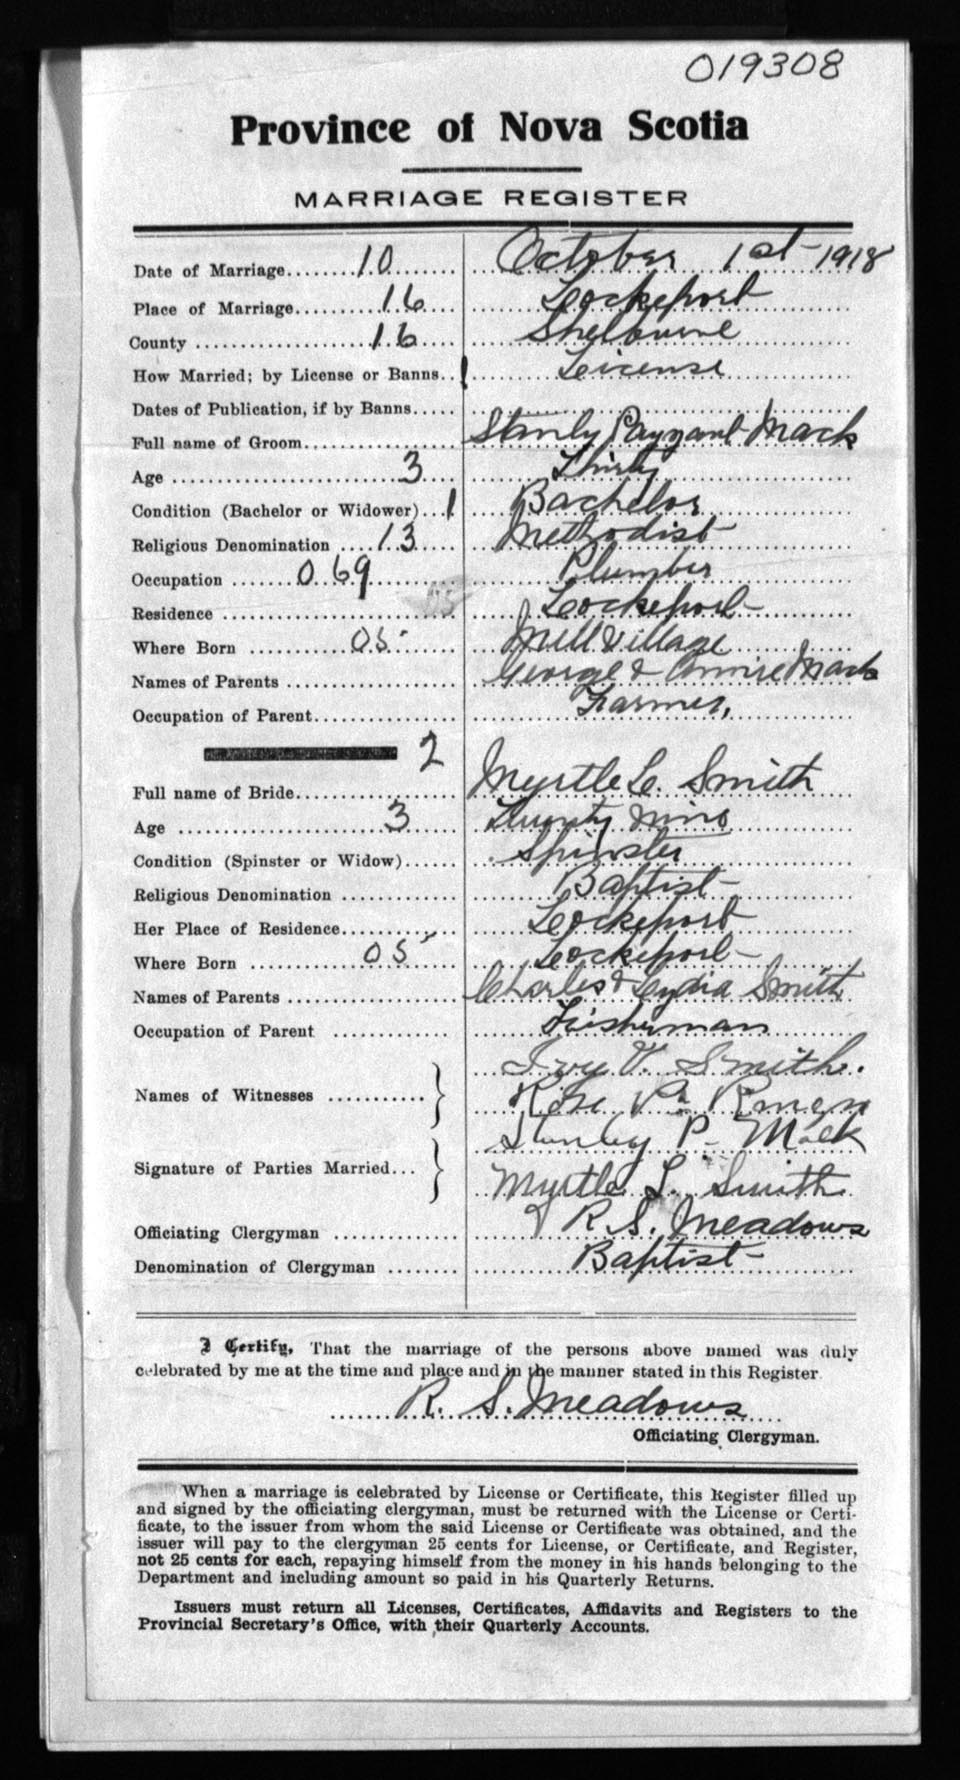 019308
Province of Nova Scotia
MARRIAGE REGISTER
Date of Marriage........10........ October 1st 1918
Place of Marriage..........16.... Lockeport
County ....................16.... Shelburne
How Married; by License or Banns..1 License
Dates of Publication, if by Banns.....
Full name of Groom.................. Stanly Payzant Mack
Age ........................3.... Thirty
Condition (Bachelor or Widower)...1 Bachelor
Religious Denomination ....13.... Methodist
Occupation .......069.......... Plumber
Residence ........................ 05 Lockeport
Where Born ..........05...... Mill Village
Names of Parents .................. George & Annie Mack
Occupation of Parent............... Farmer,
2
Full name of Bride................. Myrtle L. Smith
Age ......................3...... Twenty Nine
Condition (Spinster or Widow)...... Spinster
Religious Denomination ............. Baptist
Her Place of Residence............. Lockeport
Where Born ............05...... Lockeport
Names of Parents .................. Charles & Lydia Smith
Occupation of Parent .............. Fisherman
Ivy V. Smith.
Names of Witnesses ...........
Stanley P. Mack
Signature of Parties Married...
Myrtle L. Smith
Officiating Clergyman .............. R. S. Meadows
Denomination of Clergyman ........ Baptist
I Certify, That the marriage of the persons above named was duly
celebrated by me at the time and place and in the manner stated in this Register
R. S. Meadows
Officiating Clergyman.
When a marriage is celebrated by License or Certificate, this Register filled up
and signed by the officiating clergyman, must be returned with the License or Certi-
ficate, to the issuer from whom the said License or Certificate was obtained, and the
issuer will pay to the clergyman 25 cents for License, or Certificate, and Register,
not 25 cents for each, repaying himself from the money in his hands belonging to the
Department and including amount so paid in his Quarterly Returns.
Issuers must return all Licenses, Certificates, Affidavits and Registers to the
Provincial Secretary's Office, with their Quarterly Accounts.